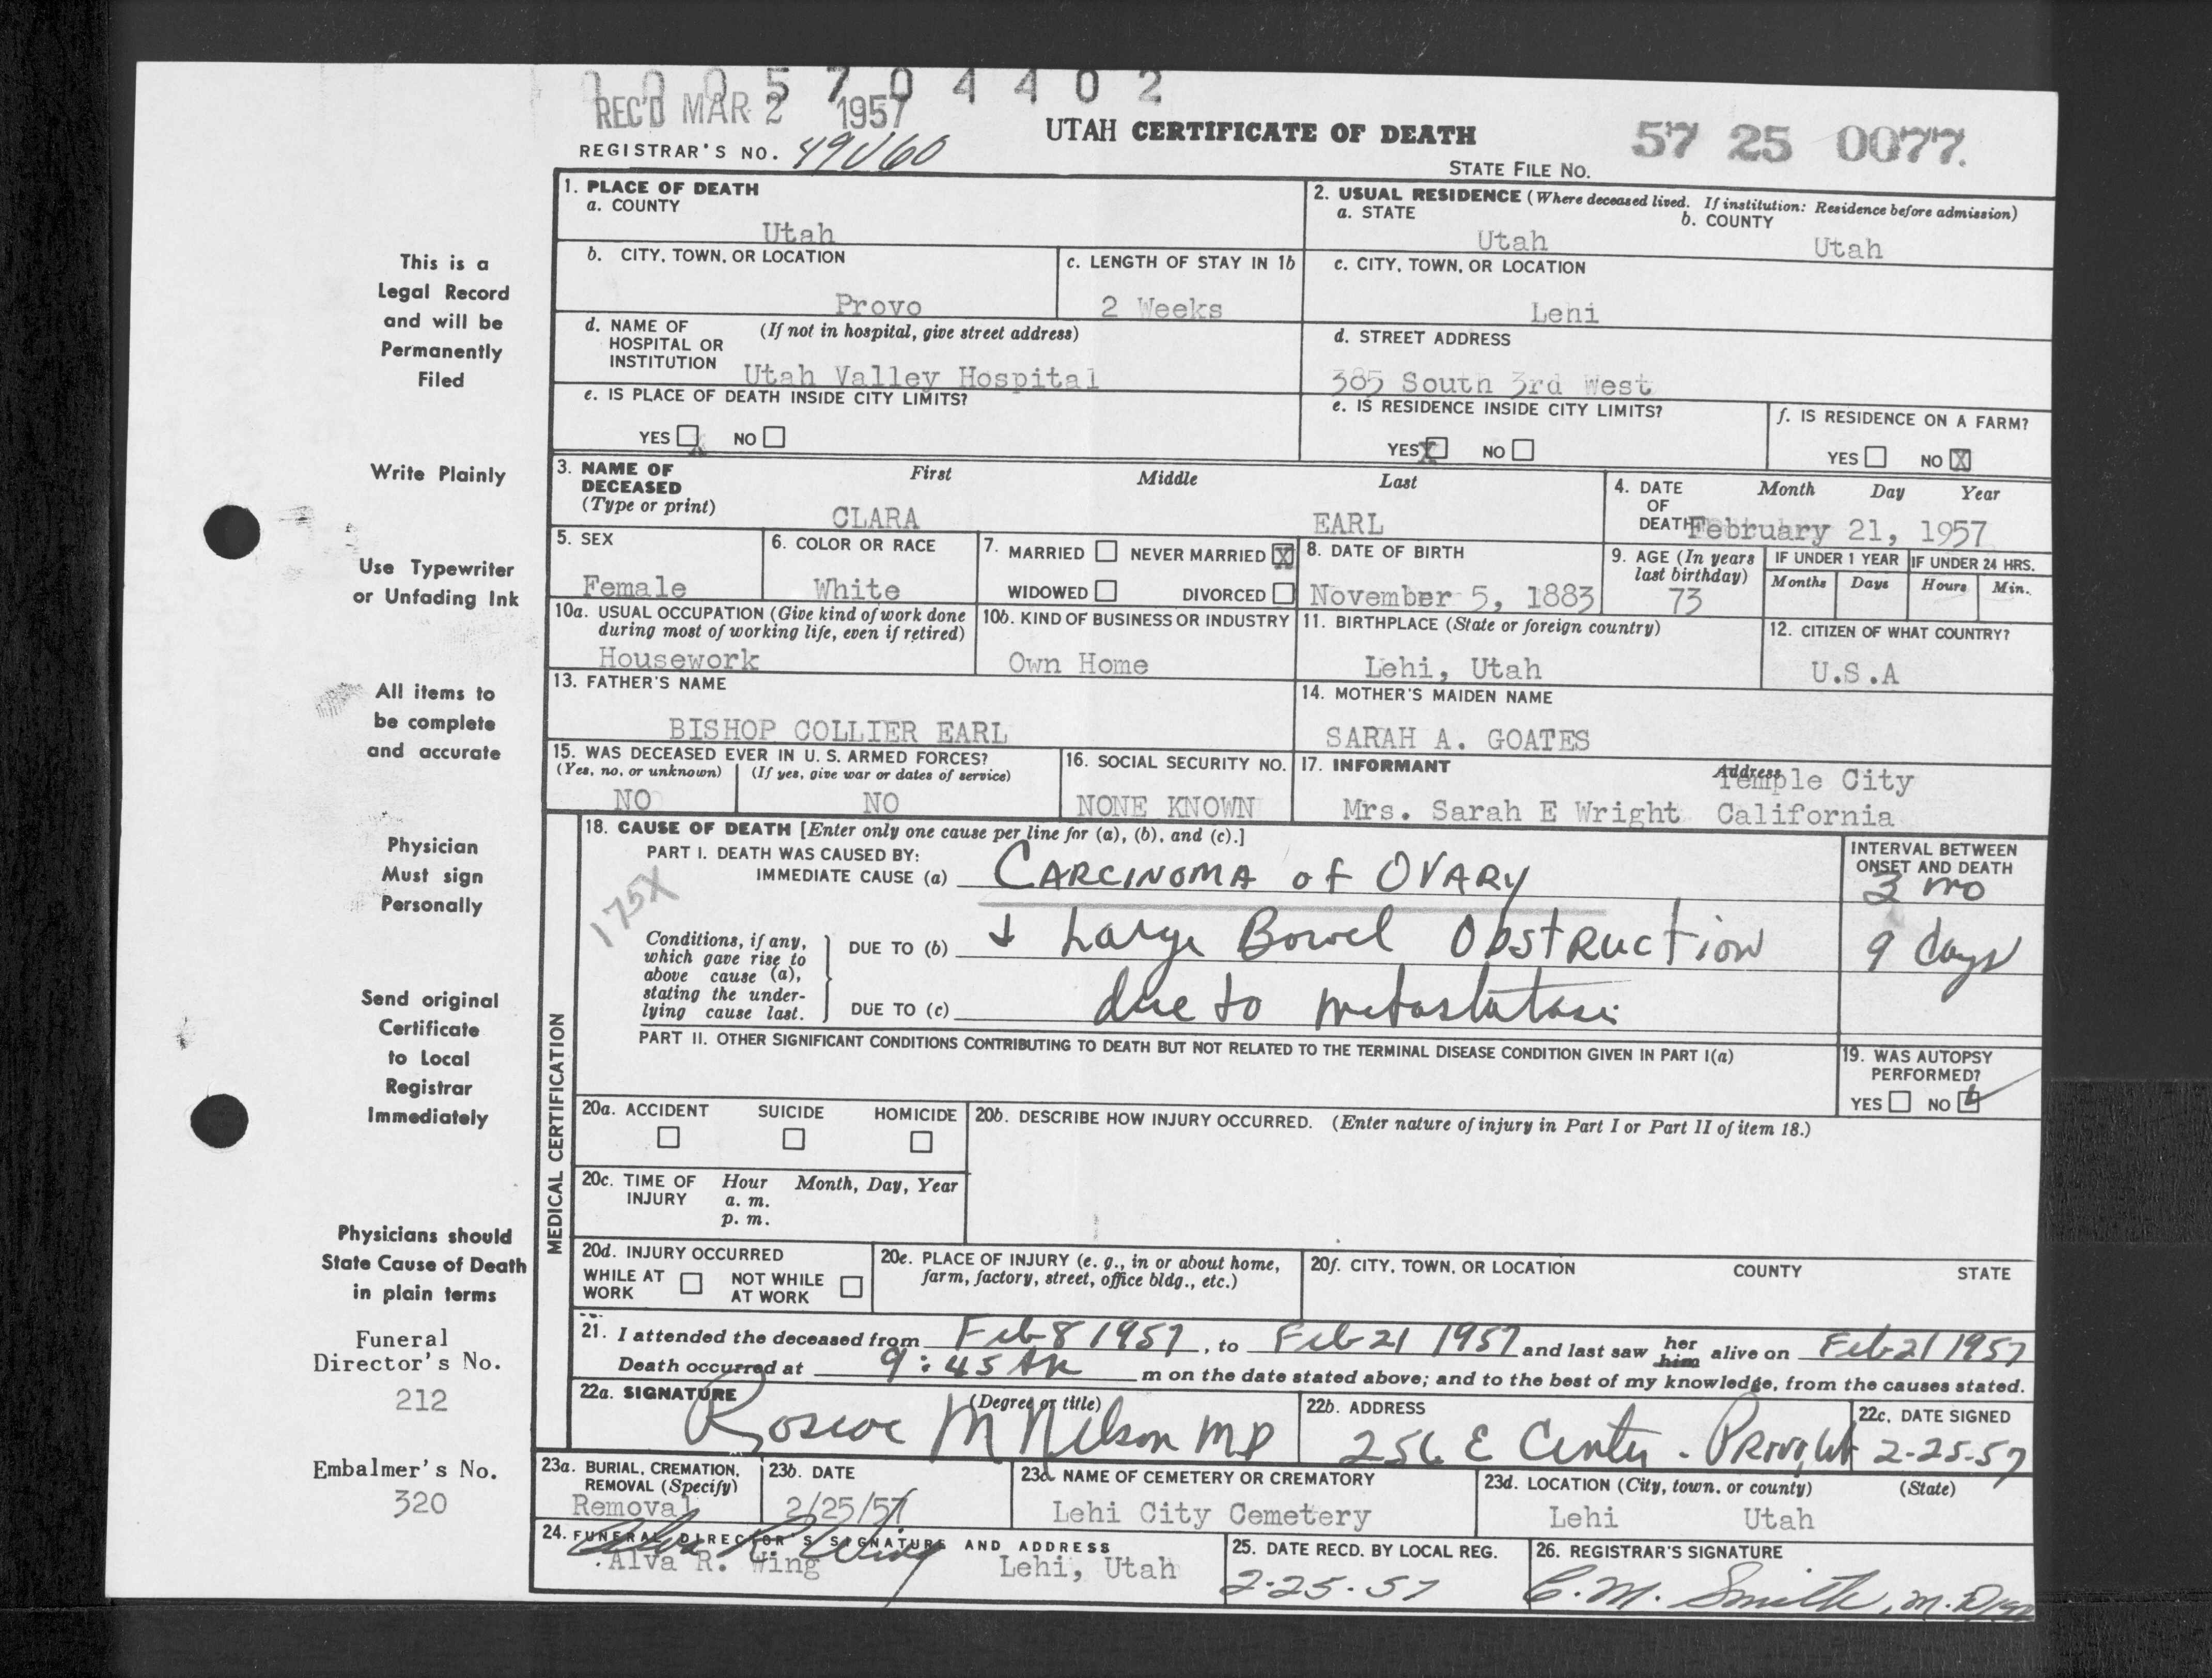 0 0 0 5 7 0 4 4 0 2
REC'D MAR 2 1957
REGISTRAR'S NO. 49U60
UTAH CERTIFICATE OF DEATH
57 25 0077.
STATE FILE NO.
1. PLACE OF DEATH
a. COUNTY
Utah
2. USUAL RESIDENCE (Where deceased lived. If institution: Residence before admission)
a. STATE b. COUNTY
Utah Utah
b. CITY, TOWN, OR LOCATION
Provo
c. LENGTH OF STAY IN 1b
2 Weeks
c. CITY, TOWN, OR LOCATION
Lehi
d. NAME OF (If not in hospital, give street address)
HOSPITAL OR
INSTITUTION
Utah Valley Hospital
d. STREET ADDRESS
385 South 3rd West
e. IS PLACE OF DEATH INSIDE CITY LIMITS?
YES X NO
e. IS RESIDENCE INSIDE CITY LIMITS?
YES X NO
f. IS RESIDENCE ON A FARM?
YES NO X
3. NAME OF First Middle Last
DECEASED
(Type or print)
CLARA EARL
4. DATE Month Day Year
OF
DEATH February 21, 1957
5. SEX
Female
6. COLOR OR RACE
White
7. MARRIED NEVER MARRIED X
WIDOWED DIVORCED
8. DATE OF BIRTH
November 5, 1883
9. AGE (In years
last birthday)
73
IF UNDER 1 YEAR
Months Days
IF UNDER 24 HRS.
Hours Min.
10a. USUAL OCCUPATION (Give kind of work done
during most of working life, even if retired)
Housework
10b. KIND OF BUSINESS OR INDUSTRY
Own Home
11. BIRTHPLACE (State or foreign country)
Lehi, Utah
12. CITIZEN OF WHAT COUNTRY?
U.S.A
13. FATHER'S NAME
BISHOP COLLIER EARL
14. MOTHER'S MAIDEN NAME
SARAH A. GOATES
15. WAS DECEASED EVER IN U. S. ARMED FORCES?
(Yes, no, or unknown) (If yes, give war or dates of service)
NO NO
16. SOCIAL SECURITY NO.
NONE KNOWN
17. INFORMANT Address
Temple City
Mrs. Sarah E Wright California
MEDICAL CERTIFICATION
18. CAUSE OF DEATH [Enter only one cause per line for (a), (b), and (c).]
PART I. DEATH WAS CAUSED BY:
IMMEDIATE CAUSE (a) CARCINOMA of OVARY
175X
INTERVAL BETWEEN
ONSET AND DEATH
3 mo
Conditions, if any,
which gave rise to
above cause (a),
stating the under-
lying cause last.
DUE TO (b) + Large Bowel Obstruction
9 days
DUE TO (c) due to metastatasis
PART II. OTHER SIGNIFICANT CONDITIONS CONTRIBUTING TO DEATH BUT NOT RELATED TO THE TERMINAL DISEASE CONDITION GIVEN IN PART I(a)
19. WAS AUTOPSY
PERFORMED?
YES NO
20a. ACCIDENT SUICIDE HOMICIDE
20b. DESCRIBE HOW INJURY OCCURRED. (Enter nature of injury in Part I or Part II of item 18.)
20c. TIME OF Hour Month, Day, Year
INJURY a. m.
p. m.
20d. INJURY OCCURRED
WHILE AT NOT WHILE
WORK AT WORK
20e. PLACE OF INJURY (e. g., in or about home,
farm, factory, street, office bldg., etc.)
20f. CITY, TOWN, OR LOCATION COUNTY STATE
21. I attended the deceased from Feb 8 1957, to Feb 21 1957 and last saw her him alive on Feb 21 1957
Death occurred at 9:45 AM m on the date stated above; and to the best of my knowledge, from the causes stated.
22a. SIGNATURE (Degree or title)
Roscoe M Nelson MD
22b. ADDRESS
256 E Center - Provo, Ut
22c. DATE SIGNED
2-25-57
23a. BURIAL, CREMATION,
REMOVAL (Specify)
Removal
23b. DATE
2/25/57
23c. NAME OF CEMETERY OR CREMATORY
Lehi City Cemetery
23d. LOCATION (City, town, or county) (State)
Lehi Utah
24. FUNERAL DIRECTOR'S SIGNATURE AND ADDRESS
Alva R. Wing
Alva R. Wing Lehi, Utah
25. DATE RECD. BY LOCAL REG.
2-25-57
26. REGISTRAR'S SIGNATURE
C. M. Smith, M.D.
This is a
Legal Record
and will be
Permanently
Filed
Write Plainly
Use Typewriter
or Unfading Ink
All items to
be complete
and accurate
Physician
Must sign
Personally
Send original
Certificate
to Local
Registrar
Immediately
Physicians should
State Cause of Death
in plain terms
Funeral
Director's No.
212
Embalmer's No.
320